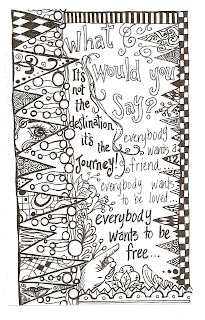 What
Would you
Say?
It's
not
the
destination,
it's the
Journey!
everybody
wants a
friend
everybody wants
to be loved...
everybody
wants to be
free...